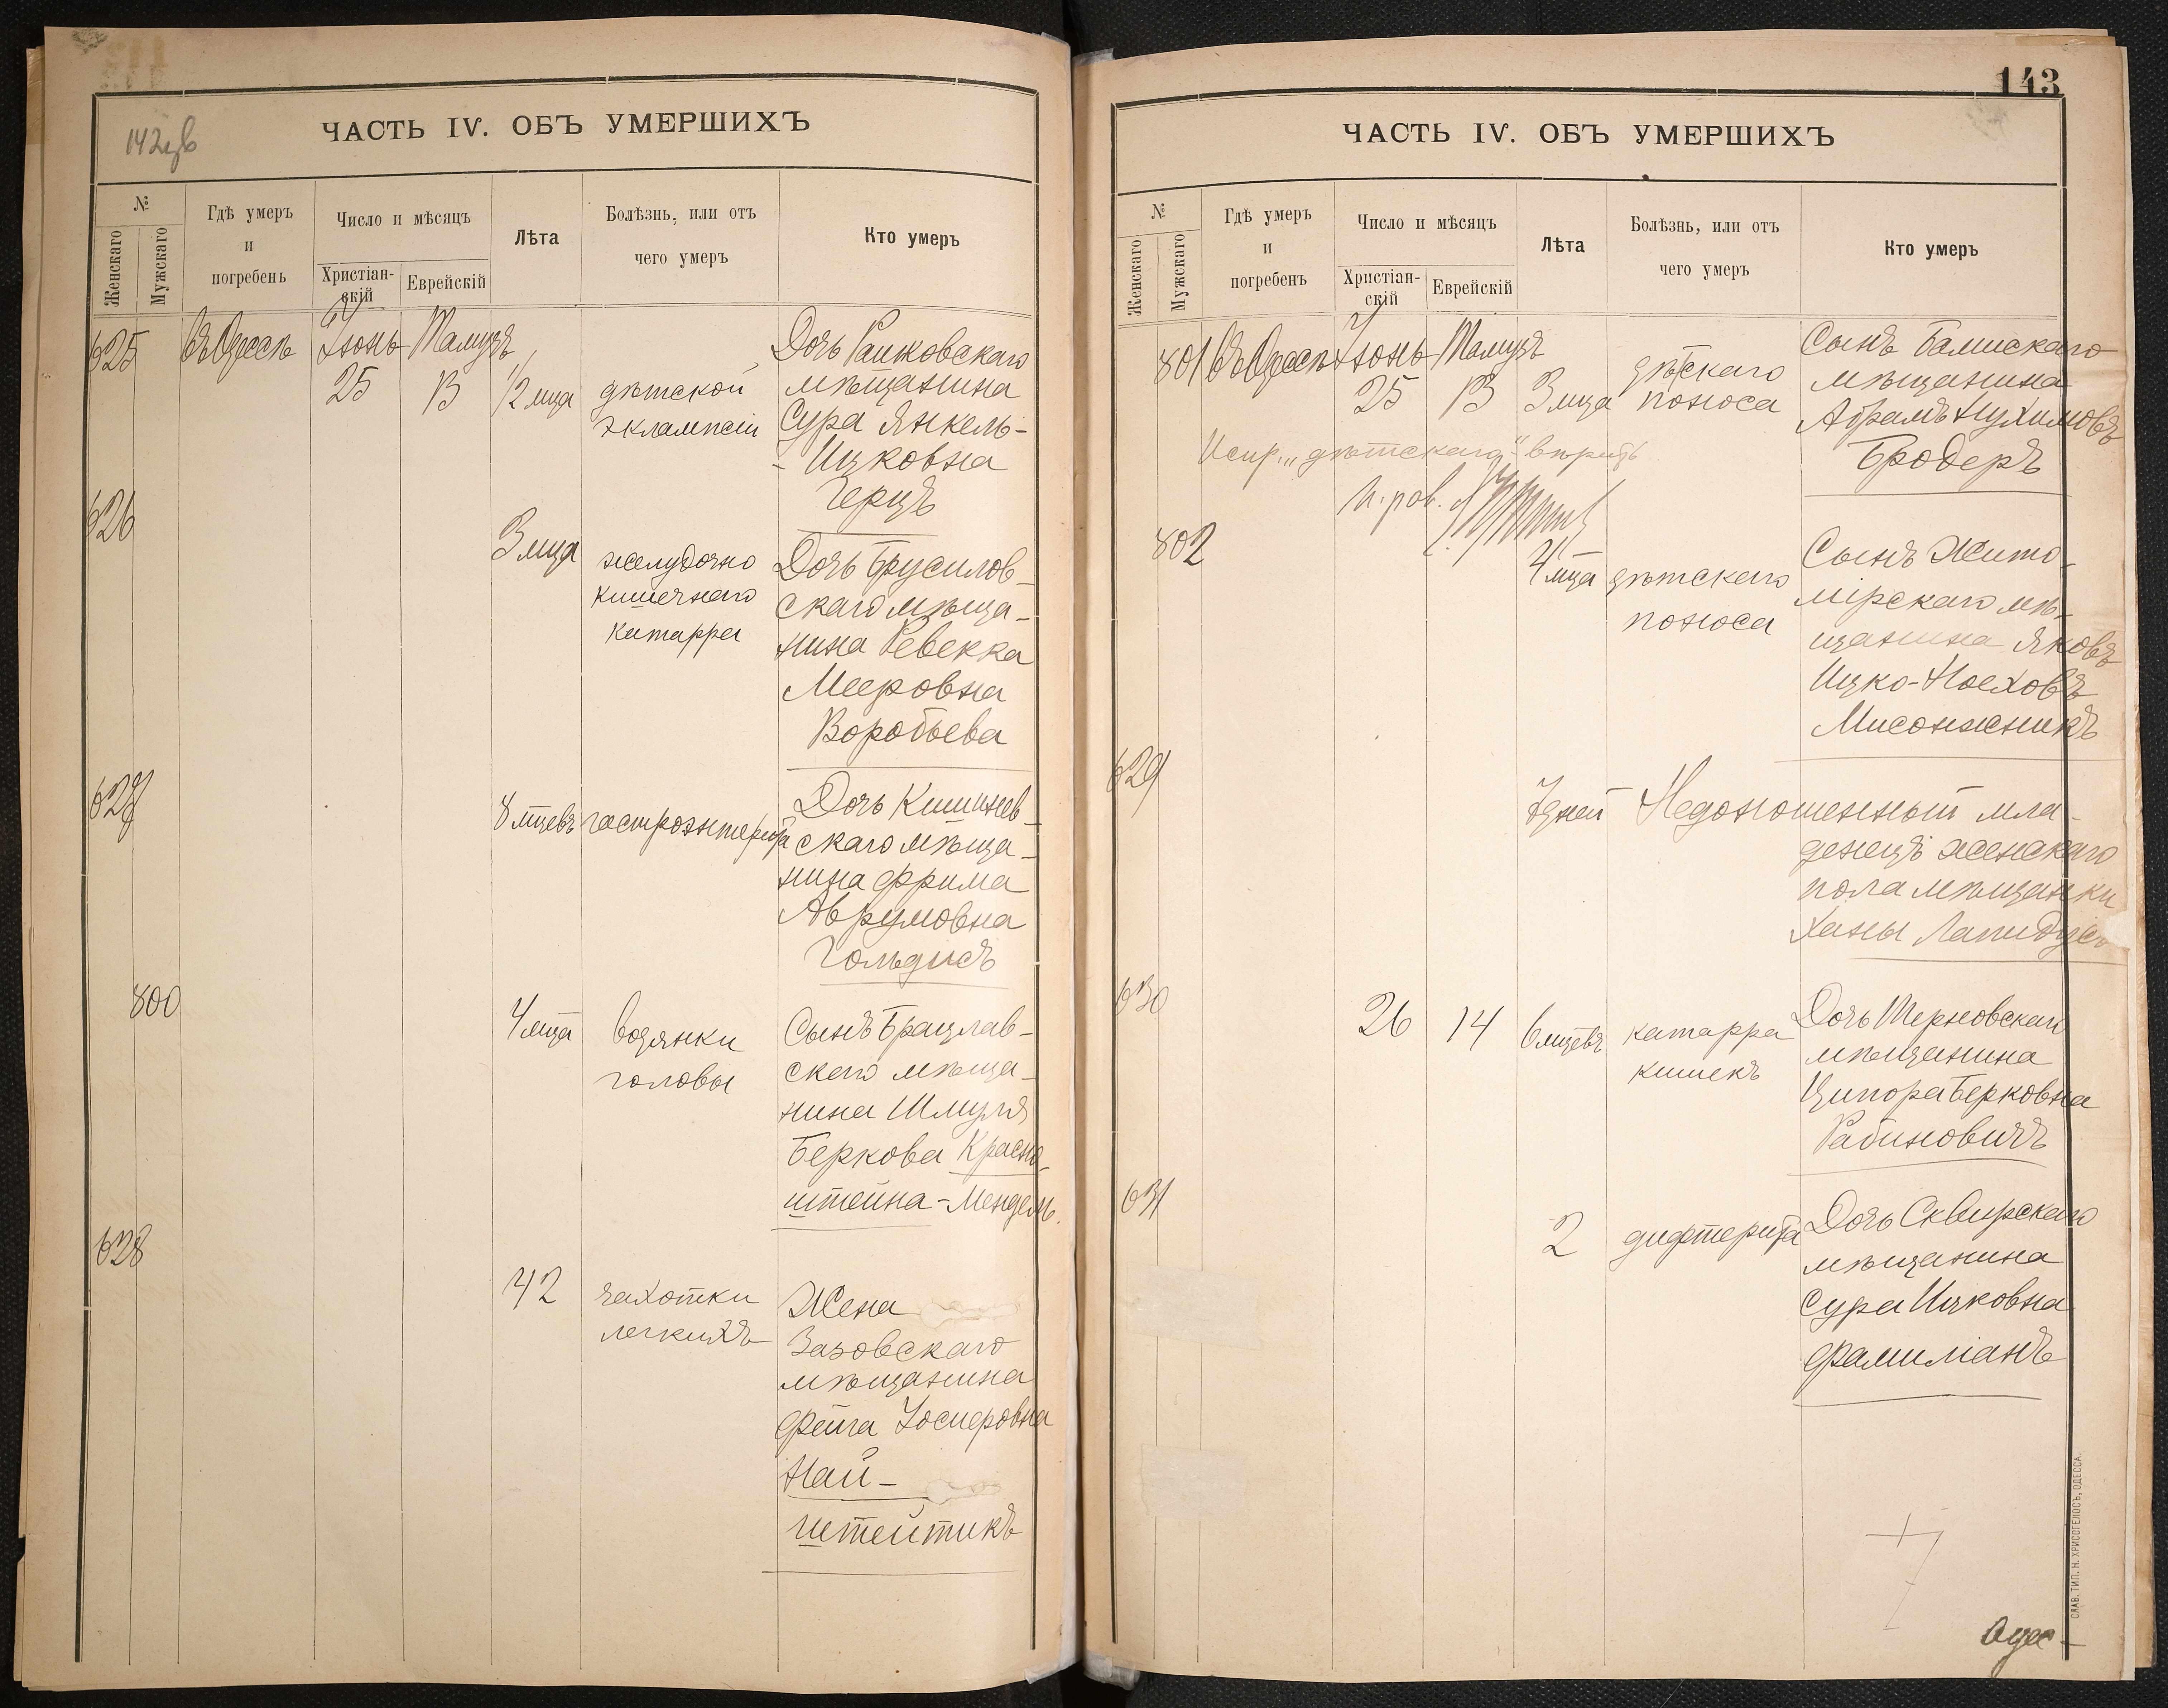 142цв
ЧАСТЬ IV. ОБЪ УМЕРШИХЪ
№
Женскаго
Мужскаго
Гдѣ умеръ
и
погребенъ
Число и мѣсяцъ
Христіан-
скій
Еврейскій
Лѣта
Болѣзнь, или отъ
чего умеръ
Кто умеръ
625
въ Одессѣ
Іюнь
25
Тамузъ
13
1/2 мца
дѣтской
эклампсіи
Дочь Рашковскаго
мѣщанина
Сура Янкель-
- Ицковна
Герцъ
626
3 мца
желудочно
кишечнаго
катарра
Дочь Брусилов-
скаго мѣща-
нина Ревекка
Мееровна
Воробьева
627
8 мцевъ
гастроэнтерита
Дочь Кишинев-
скаго мѣща-
нина Фрима
Аврумовна
Гольдисъ
800
4 мца
водянки
головы
Сынъ Брацлав-
скаго мѣща-
нина Шмуля
Беркова Красно-
штейна-Мендель.
628
42
чахотки
легкихъ
Жена
Зазовскаго
мѣщанина
Фейга Іосиеровна
Най-
штейтикъ
143
ЧАСТЬ IV. ОБЪ УМЕРШИХЪ
№
Женскаго
Мужскаго
Гдѣ умеръ
и
погребенъ
Число и мѣсяцъ
Христіан-
скій
Еврейскій
Лѣта
Болѣзнь, или отъ
чего умеръ
Кто умеръ
801
въ Одессѣ
Іюнь
25
Тамузъ
13
3 мца
дѣтскаго
поноса
Сынъ Балтскаго
мѣщанина
Абрамъ Нухимовъ
Бродеръ
Испр. „дѣтскаго“ вѣрить
802
4 мца
дѣтскаго
поноса
Сынъ Жито-
мірскаго мѣ-
щанина Яковъ
Ицко-Ноеховъ
Мисонжникъ
629
7 дней
Недоношенный мла-
денецъ женскаго
пола мѣщанки
Ханы Лапидусъ
630
26
14
6 мцевъ
катарра
кишекъ
Дочь Терновскаго
мѣщанина
Ципора Берковна
Рабиновичъ
631
2
дифтерита
Дочь Сквирскаго
мѣщанина
Сура Ицковна
Фамиліанъ
Одес-
СЛАВ. ТИП. Н. ХРИСОГЕЛОСЪ, ОДЕССА.